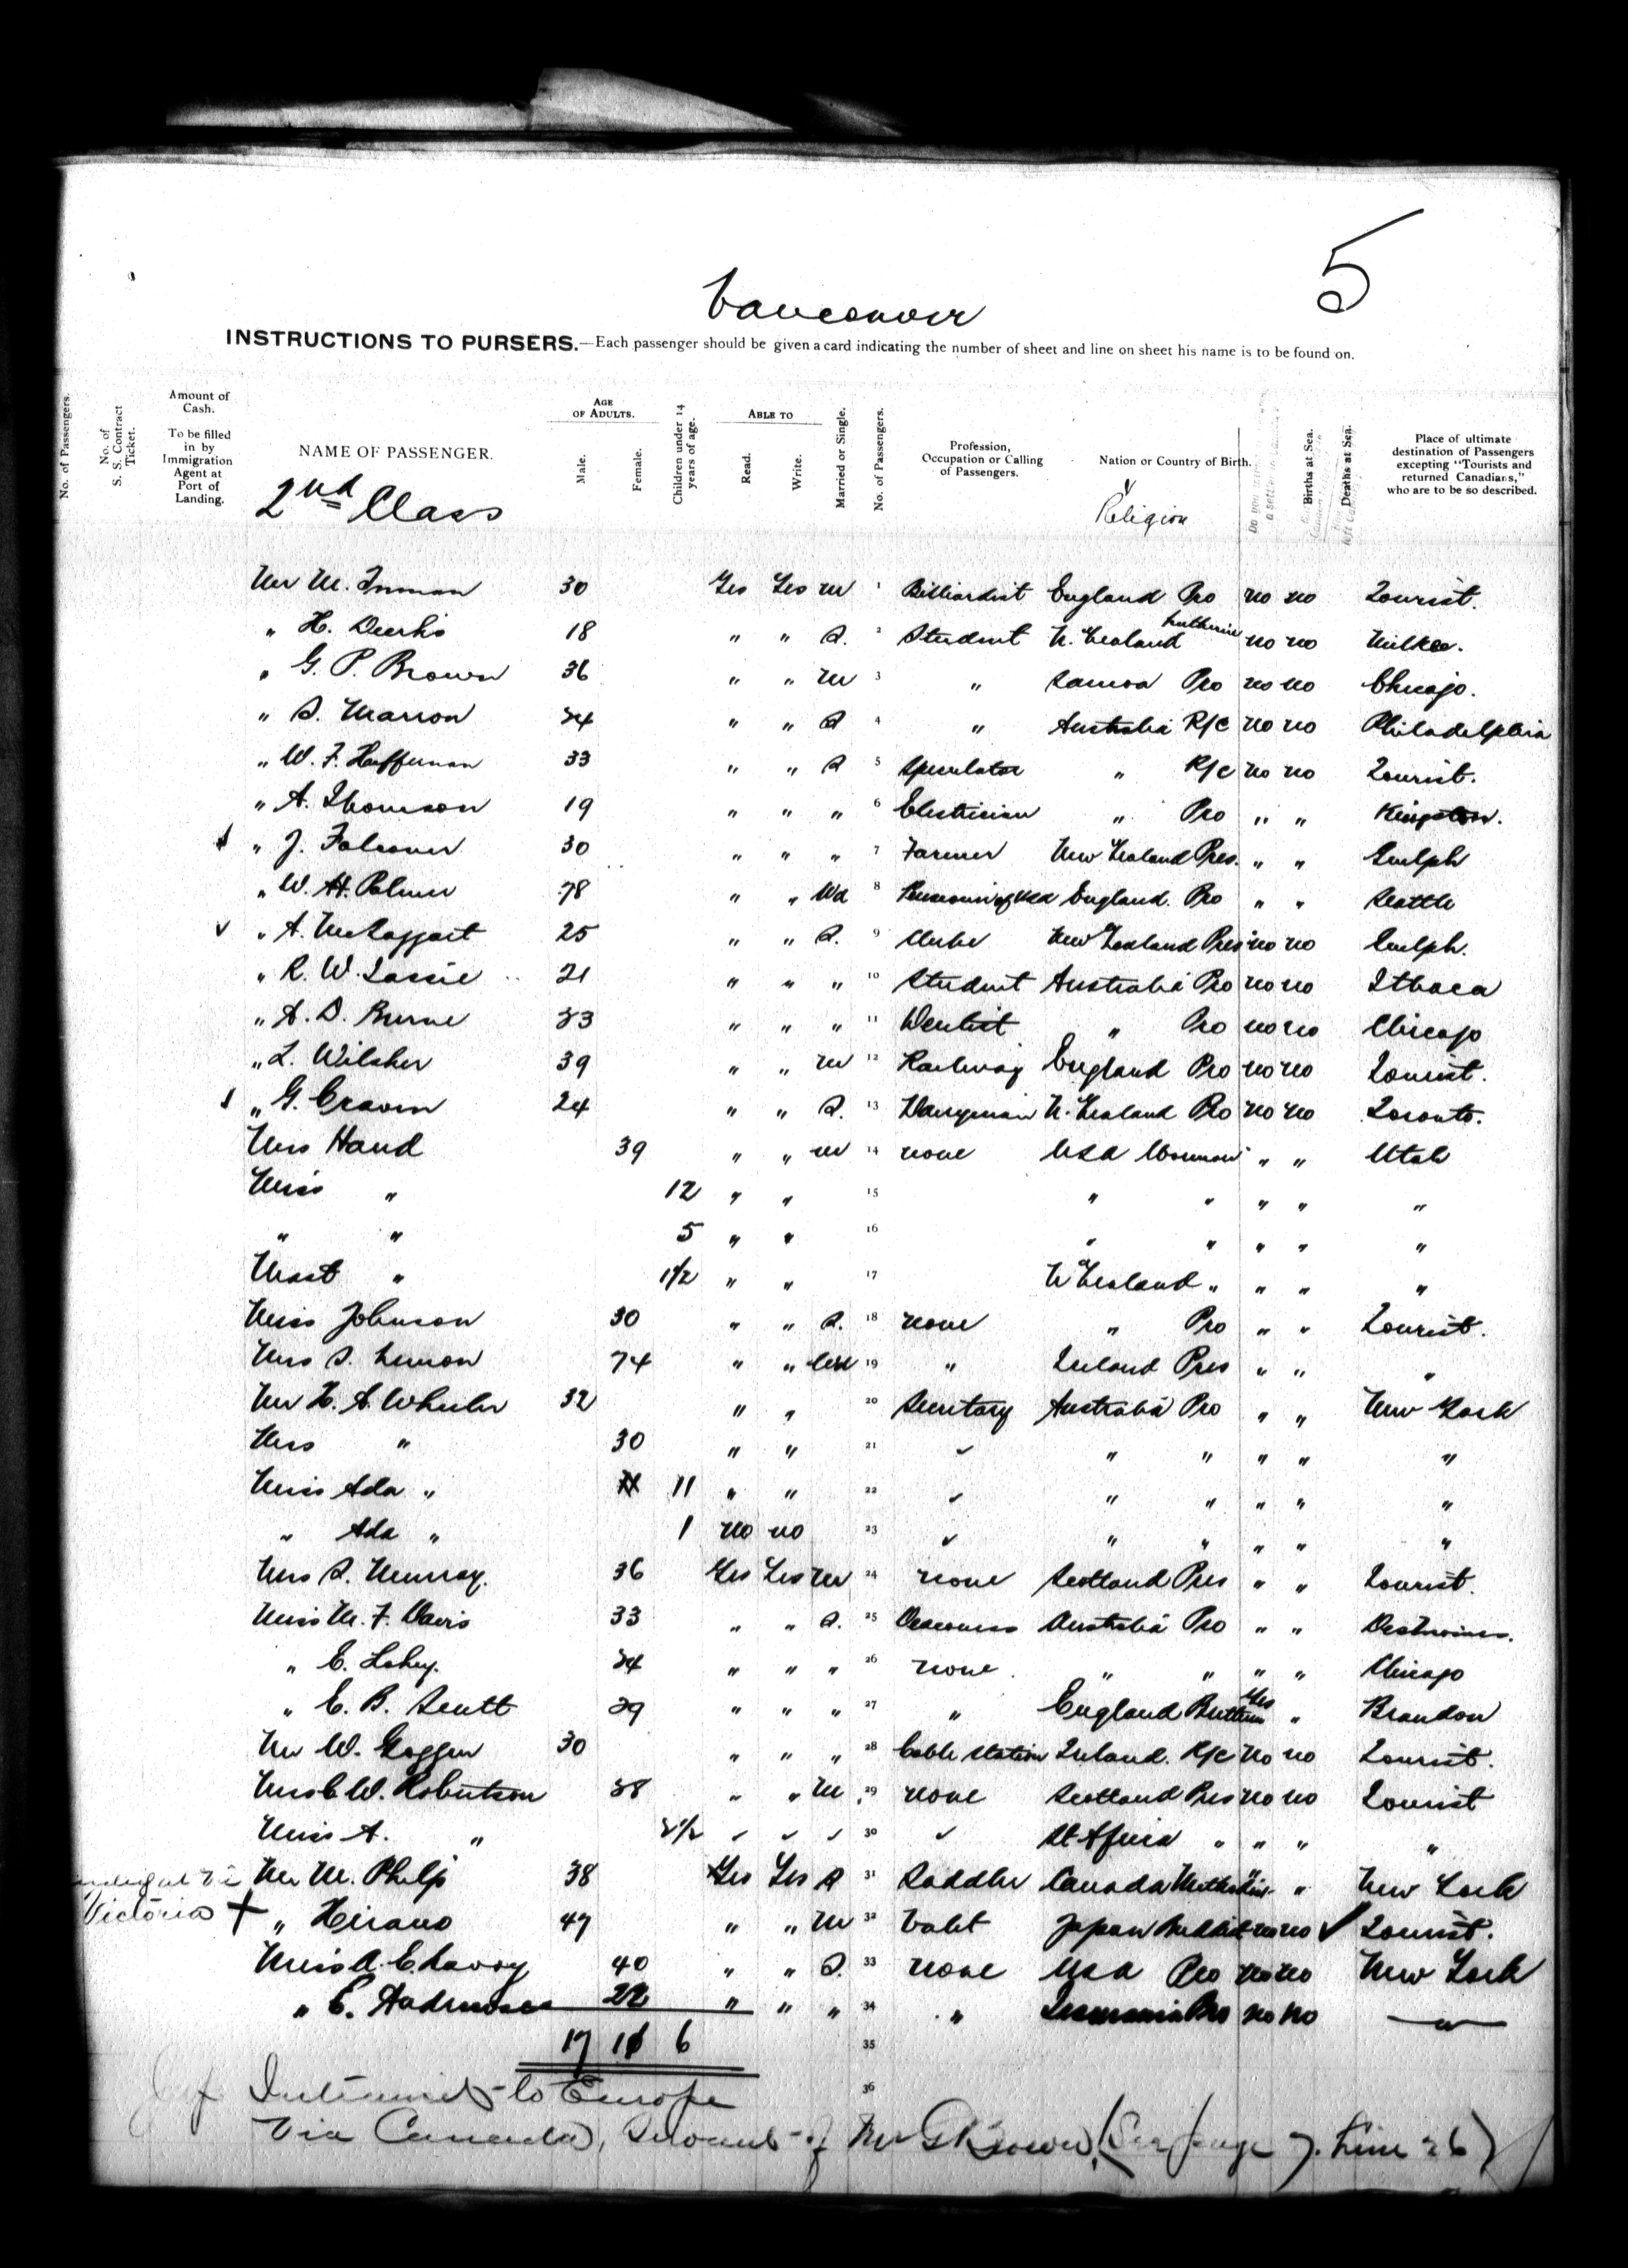 5
Vancouver
INSTRUCTIONS TO PURSERS.—Each passenger should be given a card indicating the number of sheet and line on sheet his name is to be found on.
No. of Passengers. No. of S. S. Contract Ticket. Amount of Cash. To be filled in by Immigration Agent at Port of Landing. NAME OF PASSENGER. AGE OF ADULTS. Male. Female. Children under 14 years of age. ABLE TO Read. Write. Married or Single. No. of Passengers. Profession, Occupation or Calling of Passengers. Nation or Country of Birth. Births at Sea. Deaths at Sea. Place of ultimate destination of Passengers excepting "Tourists and returned Canadians," who are to be so described.
2nd Class Religion
Mr M. Inman 30 Yes Yes M 1 Billiardist England Pro no no Tourist.
" H. 18 " " S. 2 Student N. Zealand Lutheran no no
" G. P. Brown 36 " " M 3 " Samoa Pro no no Chicago.
" S. Marron 24 " " S 4 " Australia R/C no no Philadelphia
" W. F. Heffernan 33 " " S 5 Speculator " R/C no no Tourist.
" A. Thomson 19 " " " 6 Electrician " Pro " " Kingston.
" J. Falconer 30 " " " 7 Farmer New Zealand Pres. " " Guelph
" W. H. Palmer 78 " " Wd 8 England. Pro " " Seattle
" A. McTaggart 25 " " S. 9 New Zealand Pres no no Guelph.
" R. W. 21 " " " 10 Student Australia Pro no no Ithaca
" A. D. Burne 23 " " " 11 Dentist " Pro no no Chicago
" L. Wilsher 39 " " M 12 Railway England Pro no no Tourist.
" G. Craven 24 " " S. 13 Dairyman N. Zealand Pro no no Toronto.
Mrs Hand 39 " " M 14 none USA Mormon " " Utah
Miss " 12 " " 15 " " " " "
" " 5 " " 16 " " " " "
Mast " 1 1/2 " " 17 N Zealand " " " "
Miss Johnson 30 " " S. 18 none " Pro " " Tourist.
Mrs S. Lemon 74 " " Wd 19 " Ireland Pres " " "
Mr H. A. Wheeler 32 " " 20 Secretary Australia Pro " " New York
Mrs " 30 " " 21 " " " " "
Miss Ada " 11 " " 22 " " " " "
" Ada " 1 no no 23 " " " " "
Mrs S. Murray. 36 Yes Yes M 24 none Scotland Pres " " Tourist.
Miss M. F. Davis 33 " " S. 25 Deaconess Australia Pro " " Desmoines.
" E. Lahey. 24 " " " 26 none. " " " " Chicago
" E. B. Scutt 29 " " " 27 " England Yes " Brandon
Mr W. Goggin 30 " " " 28 Cable Station Ireland. R/C no no Tourist.
Mrs C W. Robertson 38 " " M 29 none Scotland Pres no no Tourist
Miss A. " 2 1/2 30 St Africa " " " "
Mr M. Philp 38 Yes Yes S 31 Saddler Canada " " New York
Victoria + " Hirano 47 " " M 32 Valet Japan Buddhist no no ✓ Tourist.
Miss A. E. Savory 40 " " S. 33 none USA Pro no no New York
" E. 22 " " " 34 " Tasmania Pro no no "
17 11 6 35
to Europe 36
Via Canada, Servant of Mr (See page 7. Line 26)